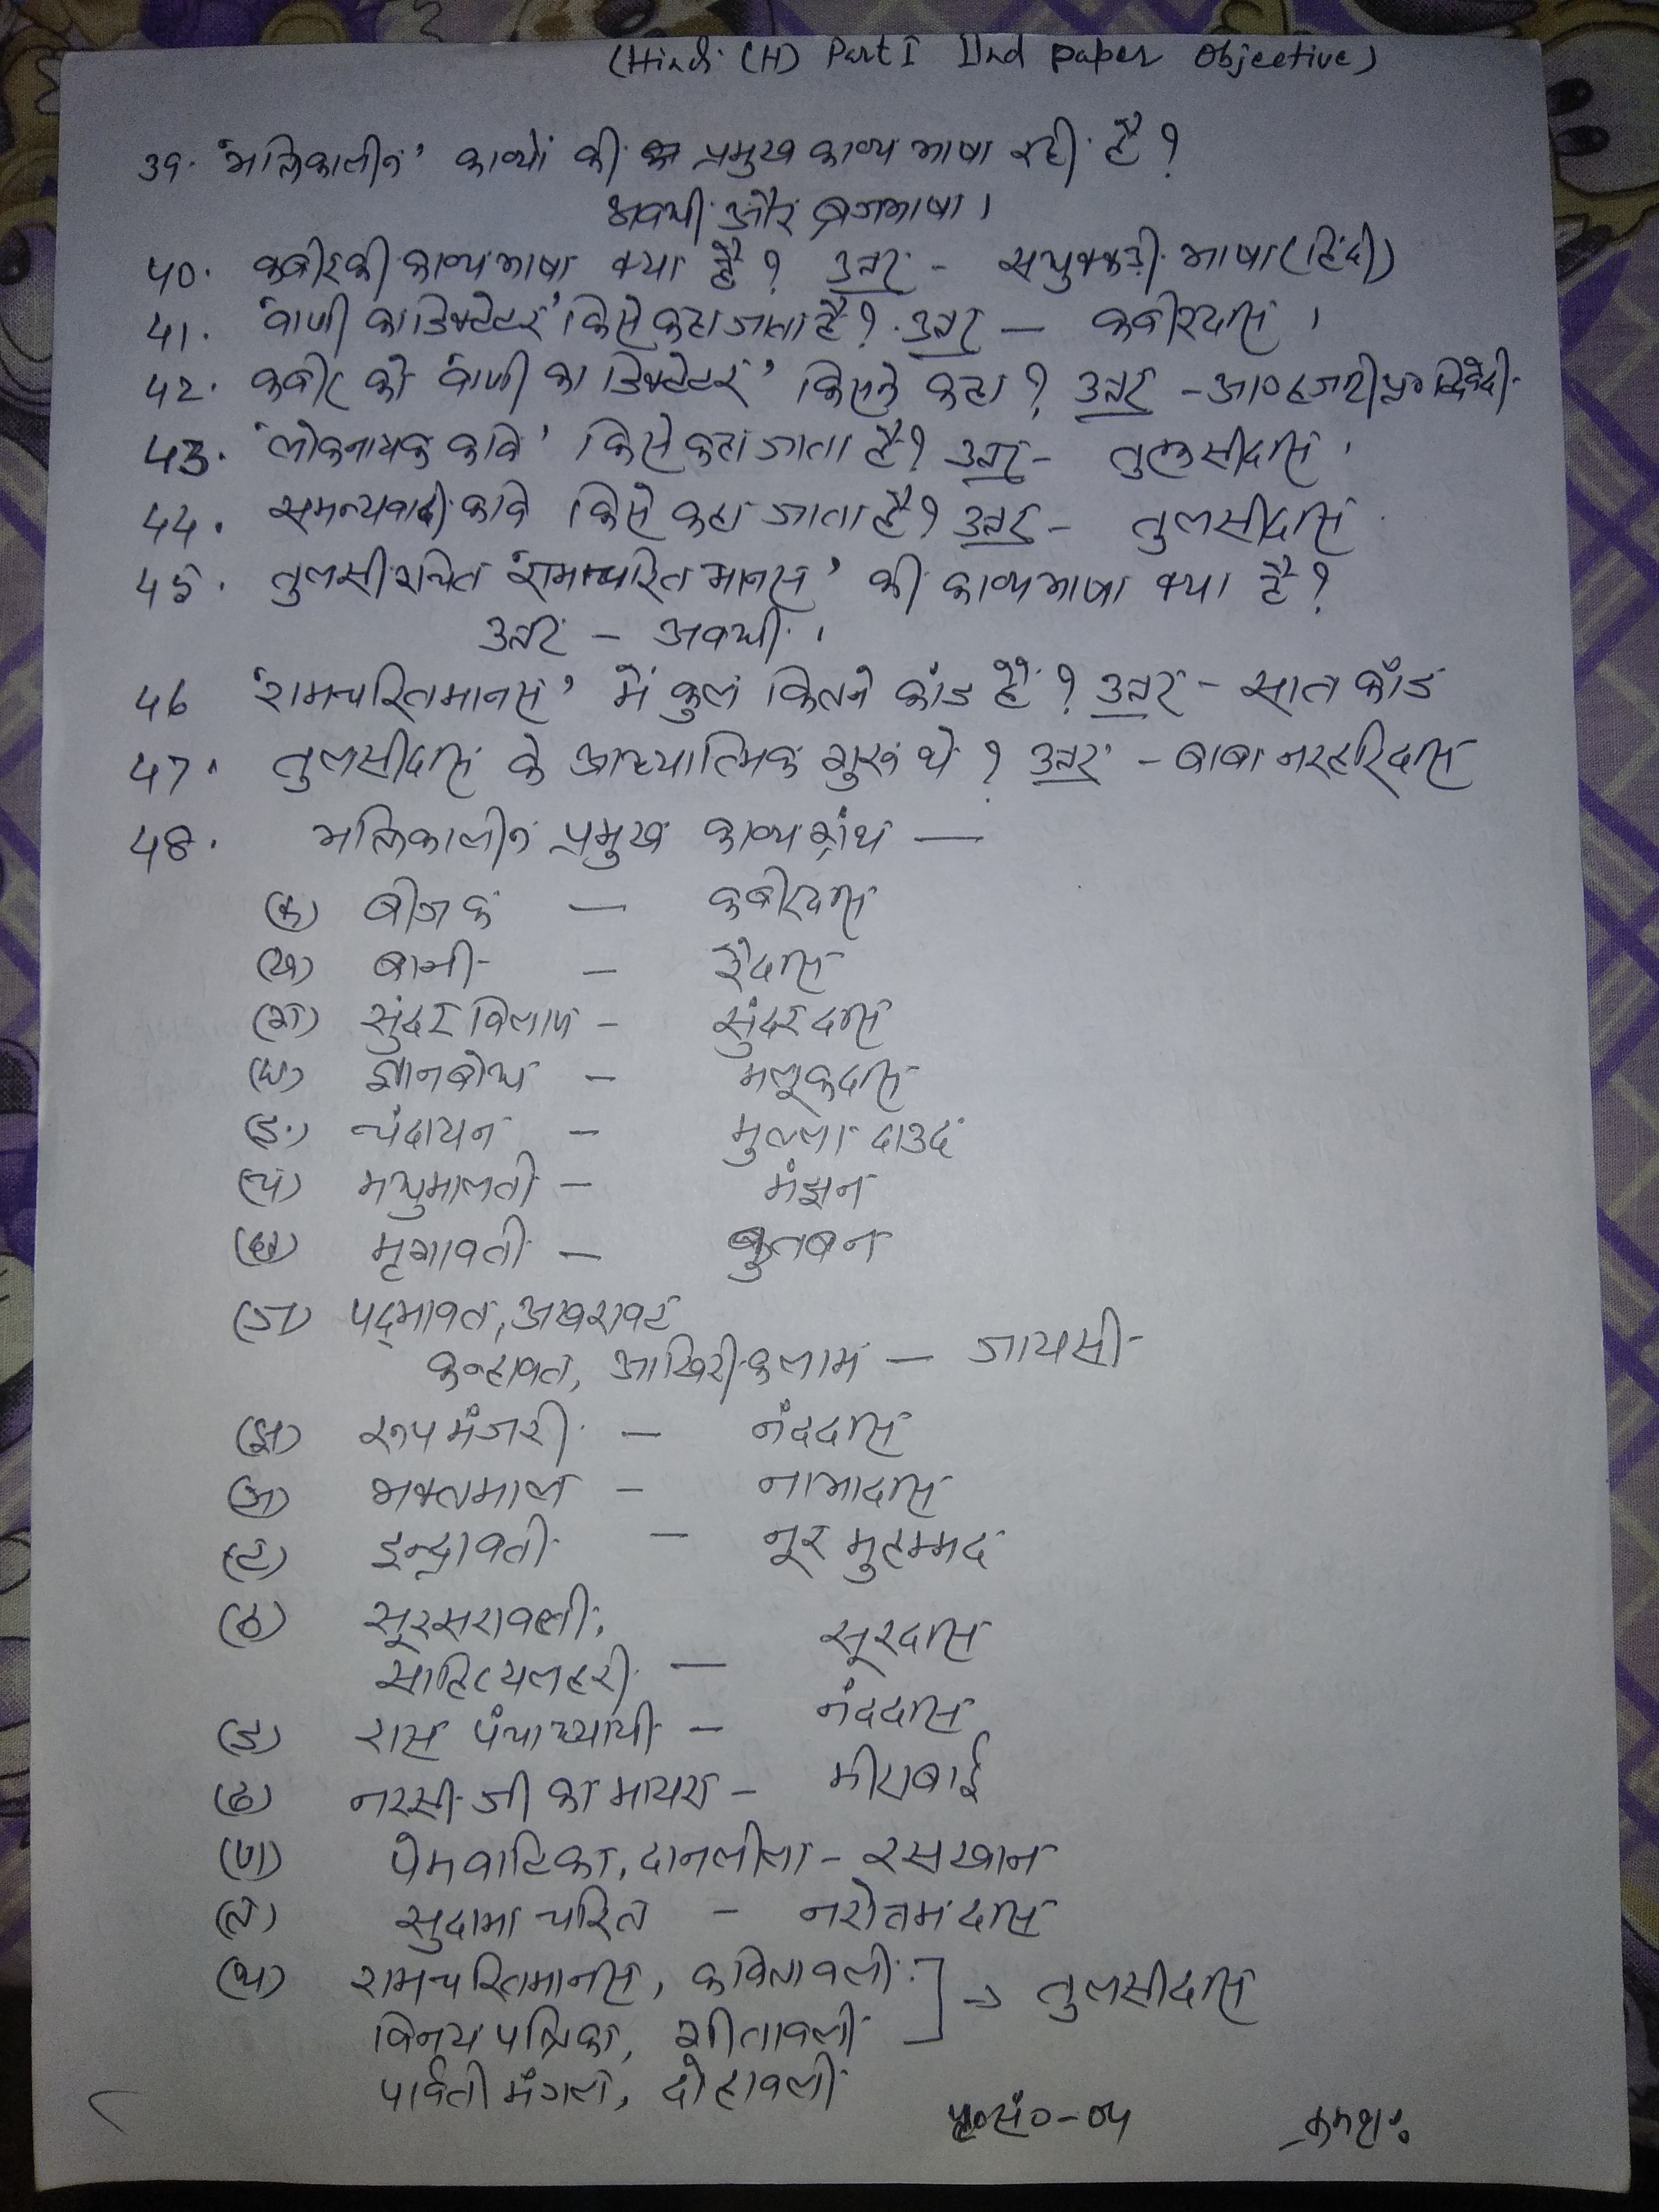 (Hindi (H) Part I IInd paper Objective)
39. 'भक्तिकालीन' काव्यों की प्रमुख काव्य भाषा रही है?
अवधी और ब्रजभाषा।
40. कबीर की काव्यभाषा क्या है? उत्तर - सधुक्कड़ी भाषा (हिंदी)
41. 'वाणी का डिक्टेटर' किसे कहा जाता है? उत्तर – कबीरदास।
42. कबीर को 'वाणी का डिक्टेटर' किसने कहा? उत्तर - आ० हजारी प्र० द्विवेदी
43. 'लोकनायक कवि' किसे कहा जाता है? उत्तर - तुलसीदास।
44. समन्यवादी कवि किसे कहा जाता है? उत्तर - तुलसीदास
45. तुलसी रचित 'रामचरित मानस' की काव्यभाषा क्या है?
उत्तर – अवधी।
46 'रामचरितमानस' में कुल कितने कांड हैं? उत्तर - सात काँड
47. तुलसीदास के आध्यात्मिक गुरु थे? उत्तर - बाबा नरहरिदास
48. भक्तिकालीन प्रमुख काव्य ग्रंथ —
(क) बीजक — कबीरदास
(ख) बानी – रैदास
(ग) सुंदर विलास – सुंदर दास
(घ) ज्ञानबोध – मलूकदास
(ङ) चंदायन – मुल्ला दाउद
(च) मधुमालती – मंझन
(छ) मृगावती – कुतबन
(ज) पद्मावत, अखरावट
कन्हावत, आखिरी कलाम – जायसी
(झ) रूपमंजरी – नंददास
(ञ) भक्तमाल – नाभादास
(ट) इन्द्रावती – नूर मुहम्मद
(ठ) सूरसरावली,
साहित्यलहरी — सूरदास
(ड) रास पंचाध्यायी – नंददास
(ढ) नरसी जी का मायरा – मीराबाई
(ण) प्रेमवाटिका, दानलीला – रसखान
(त) सुदामा चरित – नरोत्तम दास
(थ) रामचरितमानस, कवितावली
विनय पत्रिका, गीतावली ] → तुलसीदास
पार्वती मंगल, दोहावली
पृ०सं०-04 क्रमशः